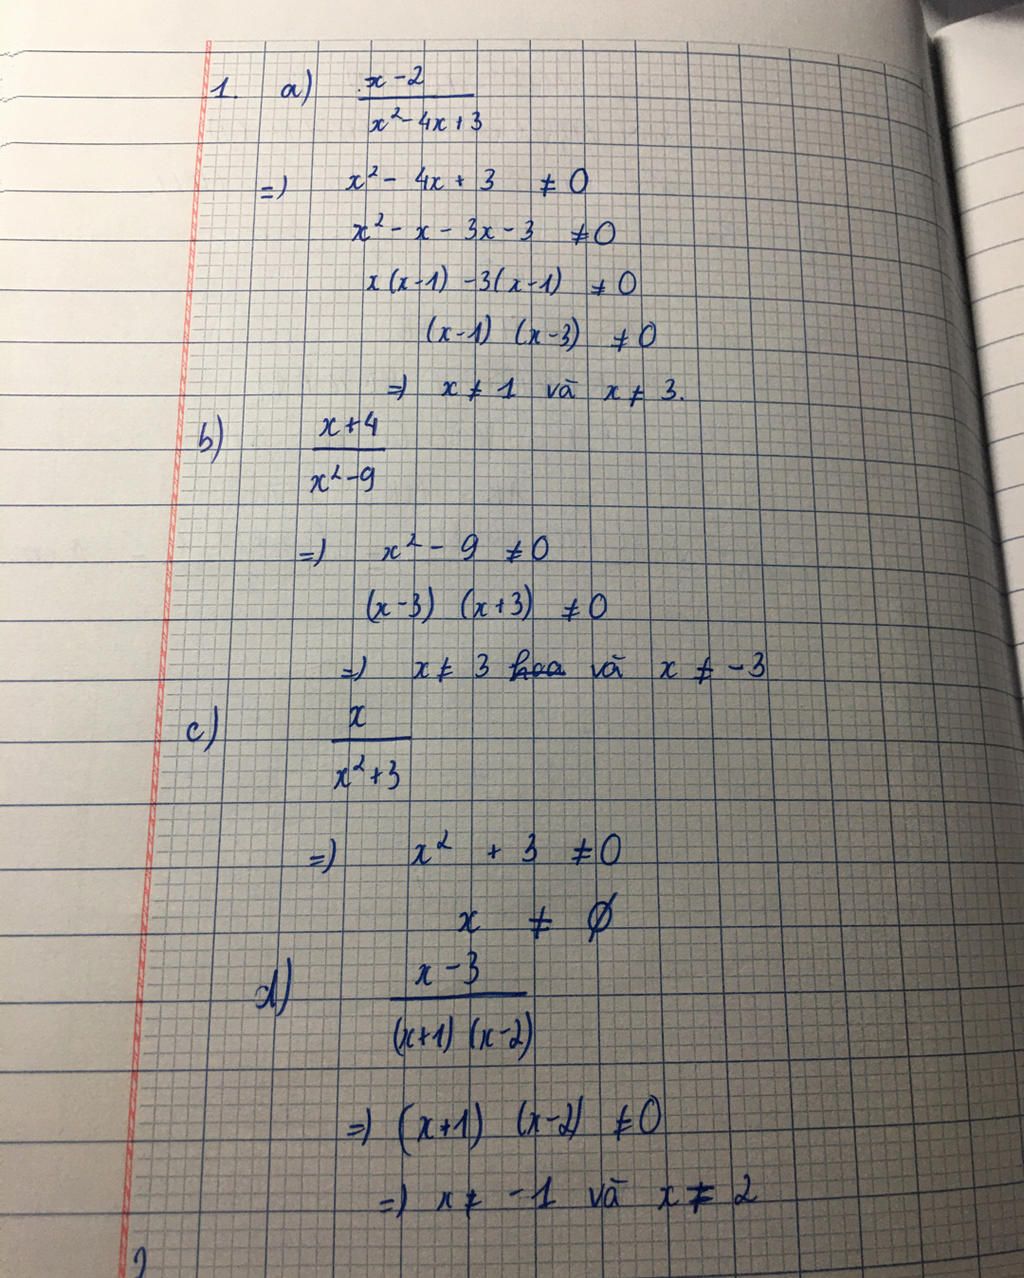 1. a) x-2
x²-4x+3
=) x² - 4x + 3 ≠ 0
x² - x - 3x - 3 ≠ 0
x(x-1) -3(x-1) ≠ 0
(x-1) (x-3) ≠ 0
=) x ≠ 1 và x ≠ 3.
b) x+4
x²-9
=) x² - 9 ≠ 0
(x-3) (x+3) ≠ 0
=) x ≠ 3 và x ≠ -3
c) x
x²+3
=) x² + 3 ≠ 0
x ≠ ∅
d) x-3
(x+1) (x-2)
=) (x+1) (x-2) ≠ 0
=) x ≠ -1 và x ≠ 2